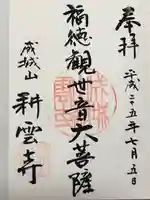 奉拝
平成二五年七月五日
福徳観世音大菩薩
成城山
耕雲寺